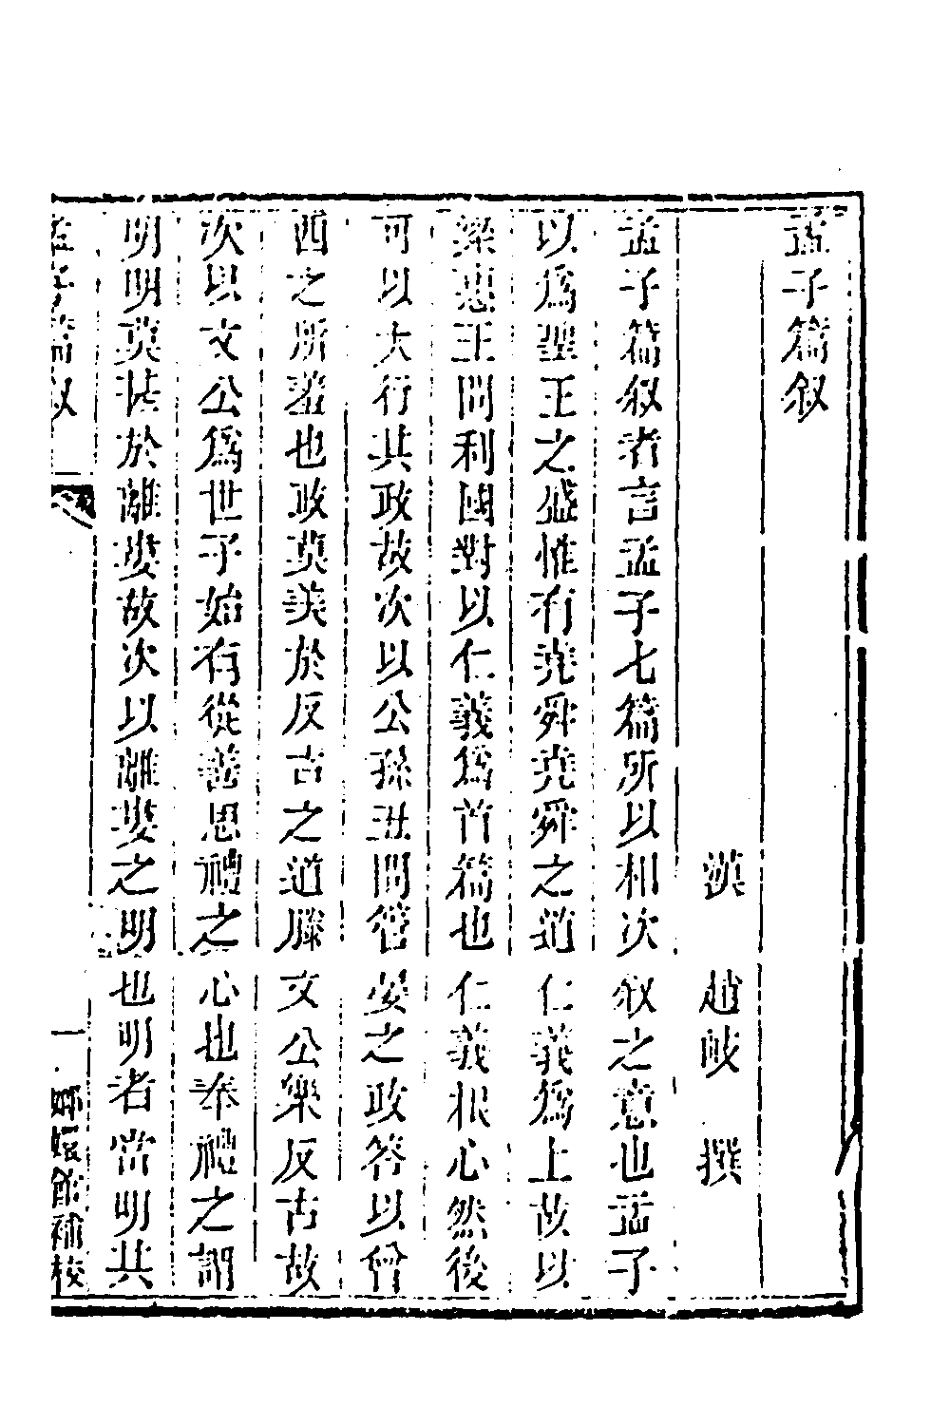 孟子篇叙
漢　趙岐　撰
孟子篇叙者言孟子七篇所以相次叙之意也孟子
以爲聖王之盛惟有堯舜堯舜之道仁義爲上故以
梁惠王問利國對以仁義爲首篇也仁義根心然後
可以大行其政故次以公孫丑問管晏之政荅以曾
西之所羞也政莫美於反古之道滕文公樂反古故
次以文公爲世子始有從善思禮之心也奉禮之謂
明明莫甚於離婁故次以離婁之明也明者當明其
孟子篇叙
一
嫏嬛館補校